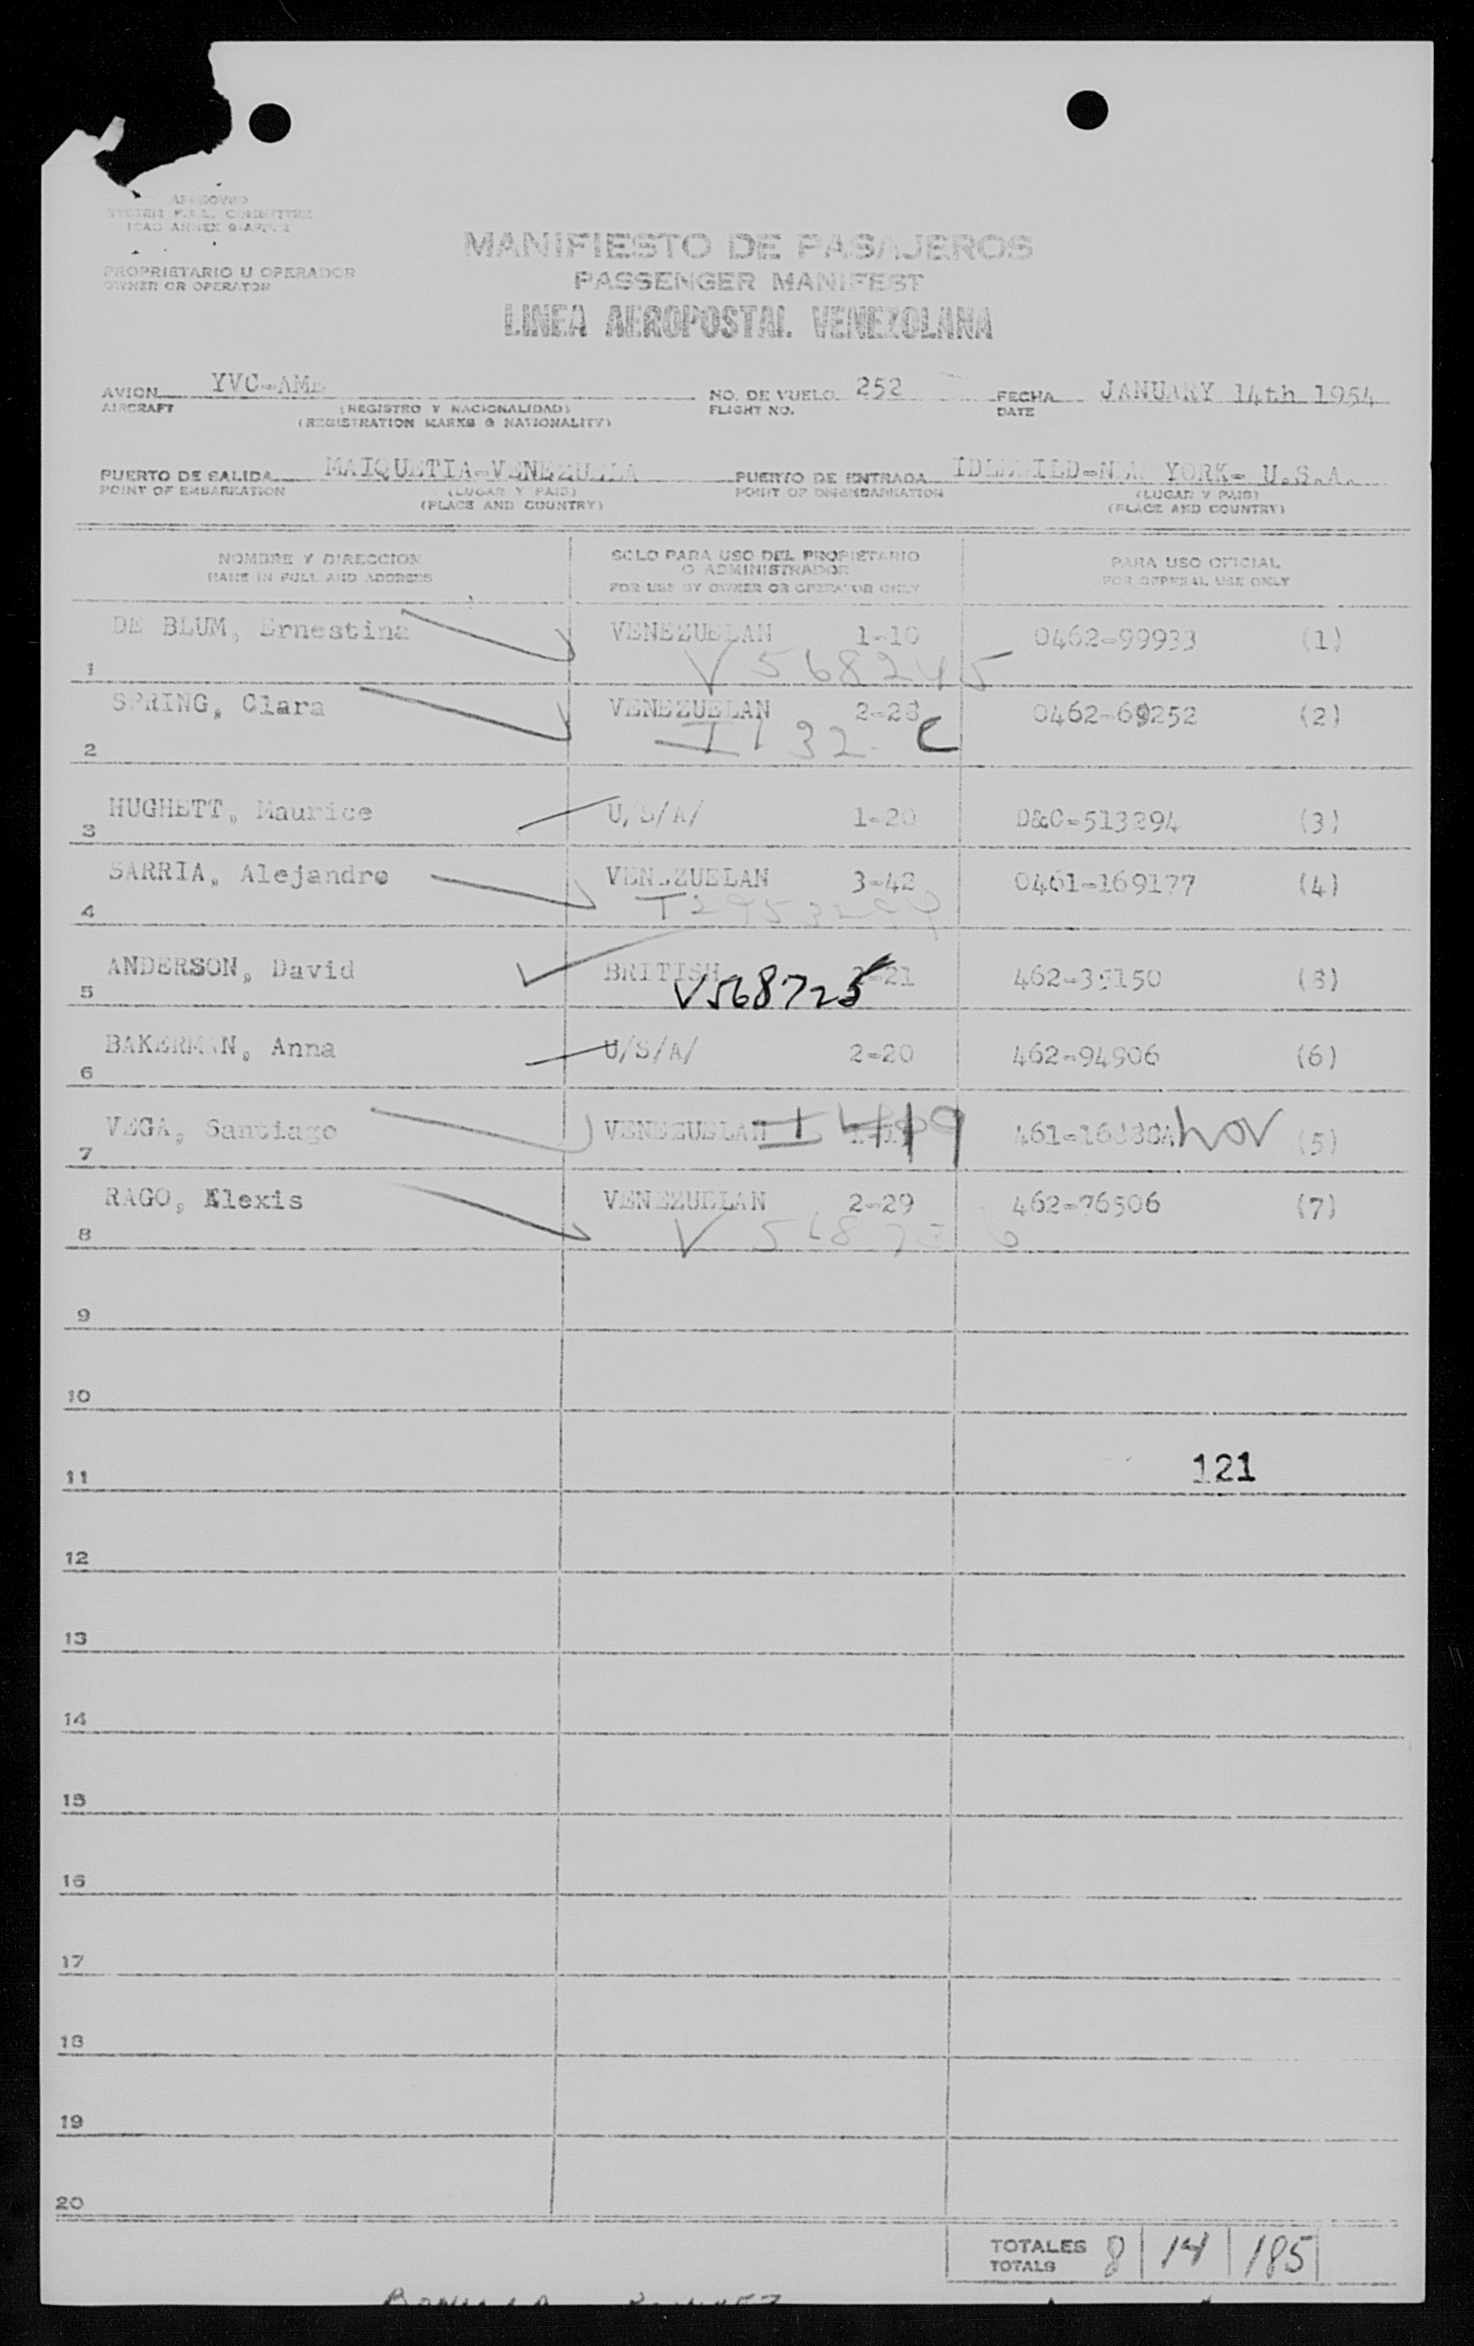 APPROVED
PROPRIETARIO U OPERADOR
OWNER OR OPERATOR
MANIFIESTO DE PASAJEROS
PASSENGER MANIFEST
LINEA AEROPOSTAL VENEZOLANA
AVION YVC-AME NO. DE VUELO 252 FECHA JANUARY 14th 1954
AIRCRAFT (REGISTRO Y NACIONALIDAD) FLIGHT NO. DATE
(REGISTRATION MARKS & NATIONALITY)
PUERTO DE SALIDA MAIQUETIA-VENEZUELA PUERTO DE ENTRADA IDLEWILD-NEW YORK- U.S.A.
POINT OF EMBARKATION (LUGAR Y PAIS) POINT OF DISEMBARKATION (LUGAR Y PAIS)
(PLACE AND COUNTRY) (PLACE AND COUNTRY)
NOMBRE Y DIRECCION SOLO PARA USO DEL PROPIETARIO PARA USO OFICIAL
O ADMINISTRADOR
NAME IN FULL AND ADDRESS FOR USE BY OWNER OR OPERATOR ONLY FOR OFFICIAL USE ONLY
DE BLUM, Ernestina VENEZUELAN 1-10 0462-99933 (1)
1 V 568245
SPRING, Clara VENEZUELAN 2-28 0462-69252 (2)
2 I 132 C
HUGHETT, Maurice U/S/A/ 1-20 D&C-513294 (3)
3
SARRIA, Alejandro VENEZUELAN 3-42 0461-169177 (4)
4
ANDERSON, David BRITISH 462-35150 (8)
5 V568725
BAKERMAN, Anna U/S/A/ 2-20 462-94906 (6)
6
VEGA, Santiago VENEZUELAN I 419 nov (5)
7
RAGO, Alexis VENEZUELAN 2-29 462-76506 (7)
8
9
10
121
11
12
13
14
15
16
17
18
19
20
TOTALES 8 14 185
TOTALS